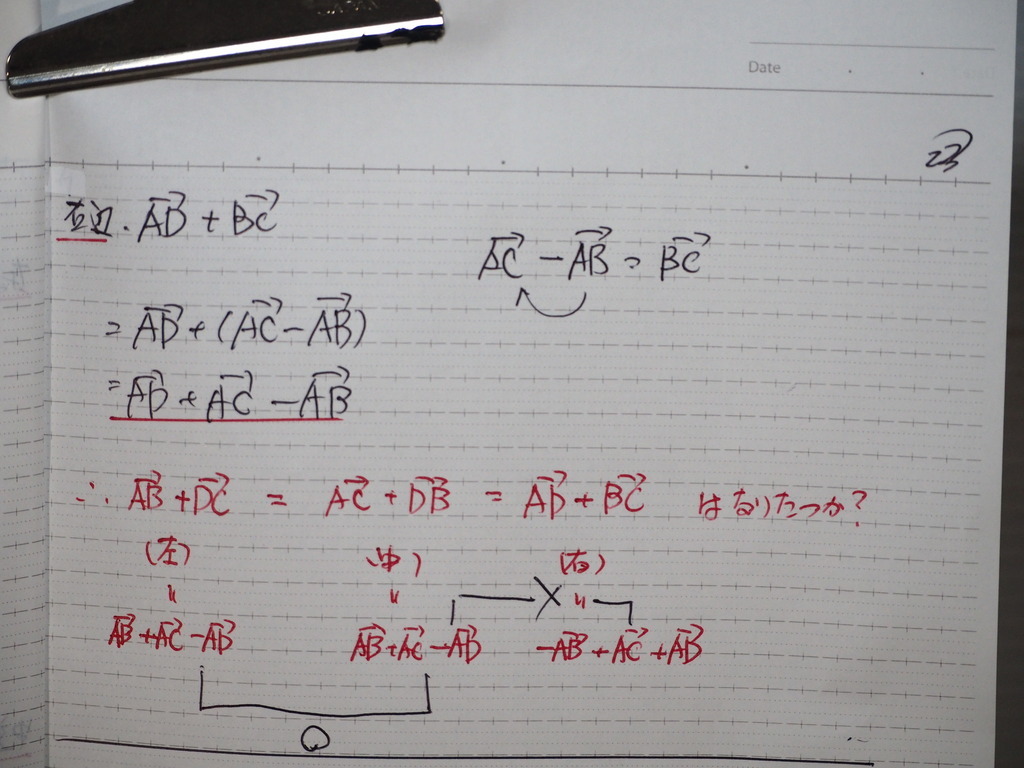 Date
23
右辺. $\overrightarrow{AD} + \overrightarrow{BC}$
$\overrightarrow{AC} - \overrightarrow{AB} = \overrightarrow{BC}$
$= \overrightarrow{AD} + (\overrightarrow{AC} - \overrightarrow{AB})$
$= \overrightarrow{AD} + \overrightarrow{AC} - \overrightarrow{AB}$
∴ $\overrightarrow{AB} + \overrightarrow{DC} = \overrightarrow{AC} + \overrightarrow{DB} = \overrightarrow{AD} + \overrightarrow{BC}$ はなりたつか?
(左) (中) (右)
〃 〃 × 〃
$\overrightarrow{AB} + \overrightarrow{AC} - \overrightarrow{AD}$ $\overrightarrow{AB} + \overrightarrow{AC} - \overrightarrow{AD}$ $-\overrightarrow{AB} + \overrightarrow{AC} + \overrightarrow{AD}$
○